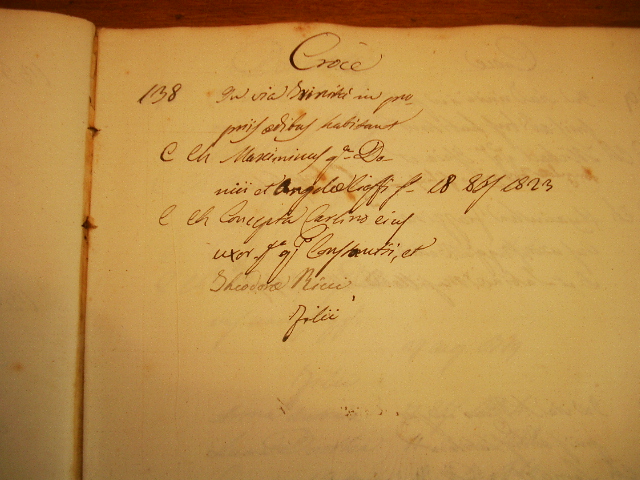 Croce
138 In via Trinità in pro-
priis ædibus habitant
C Ch Maximinus q.m Do-
nici et Angelæ f. 18 1823
C Ch Concepta Carlino ejus
uxor f.a q.m Constantii, et
Theodoræ Ricci
Filii